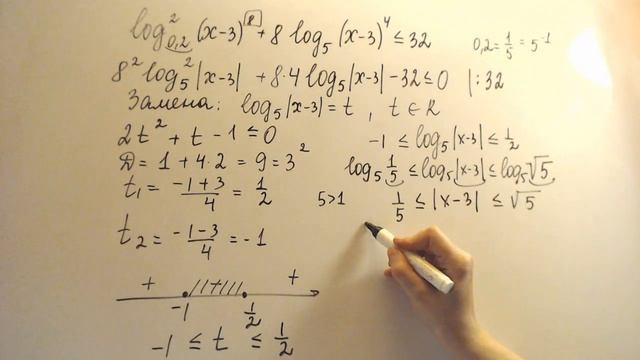 log²₀,₂ (x-3)⁸ + 8 log₅ (x-3)⁴ ≤ 32
0,2 = 1/5 = 5⁻¹
8² log₅² |x-3| + 8·4 log₅ |x-3| - 32 ≤ 0 |: 32
Замена: log₅ |x-3| = t , t ∈ R
2t² + t - 1 ≤ 0
D = 1 + 4·2 = 9 = 3²
t₁ = (-1+3)/4 = 1/2
t₂ = (-1-3)/4 = -1
+ + +
-1 1/2
-1 ≤ t ≤ 1/2
-1 ≤ log₅ |x-3| ≤ 1/2
log₅ 1/5 ≤ log₅ |x-3| ≤ log₅ √5
5>1 1/5 ≤ |x-3| ≤ √5